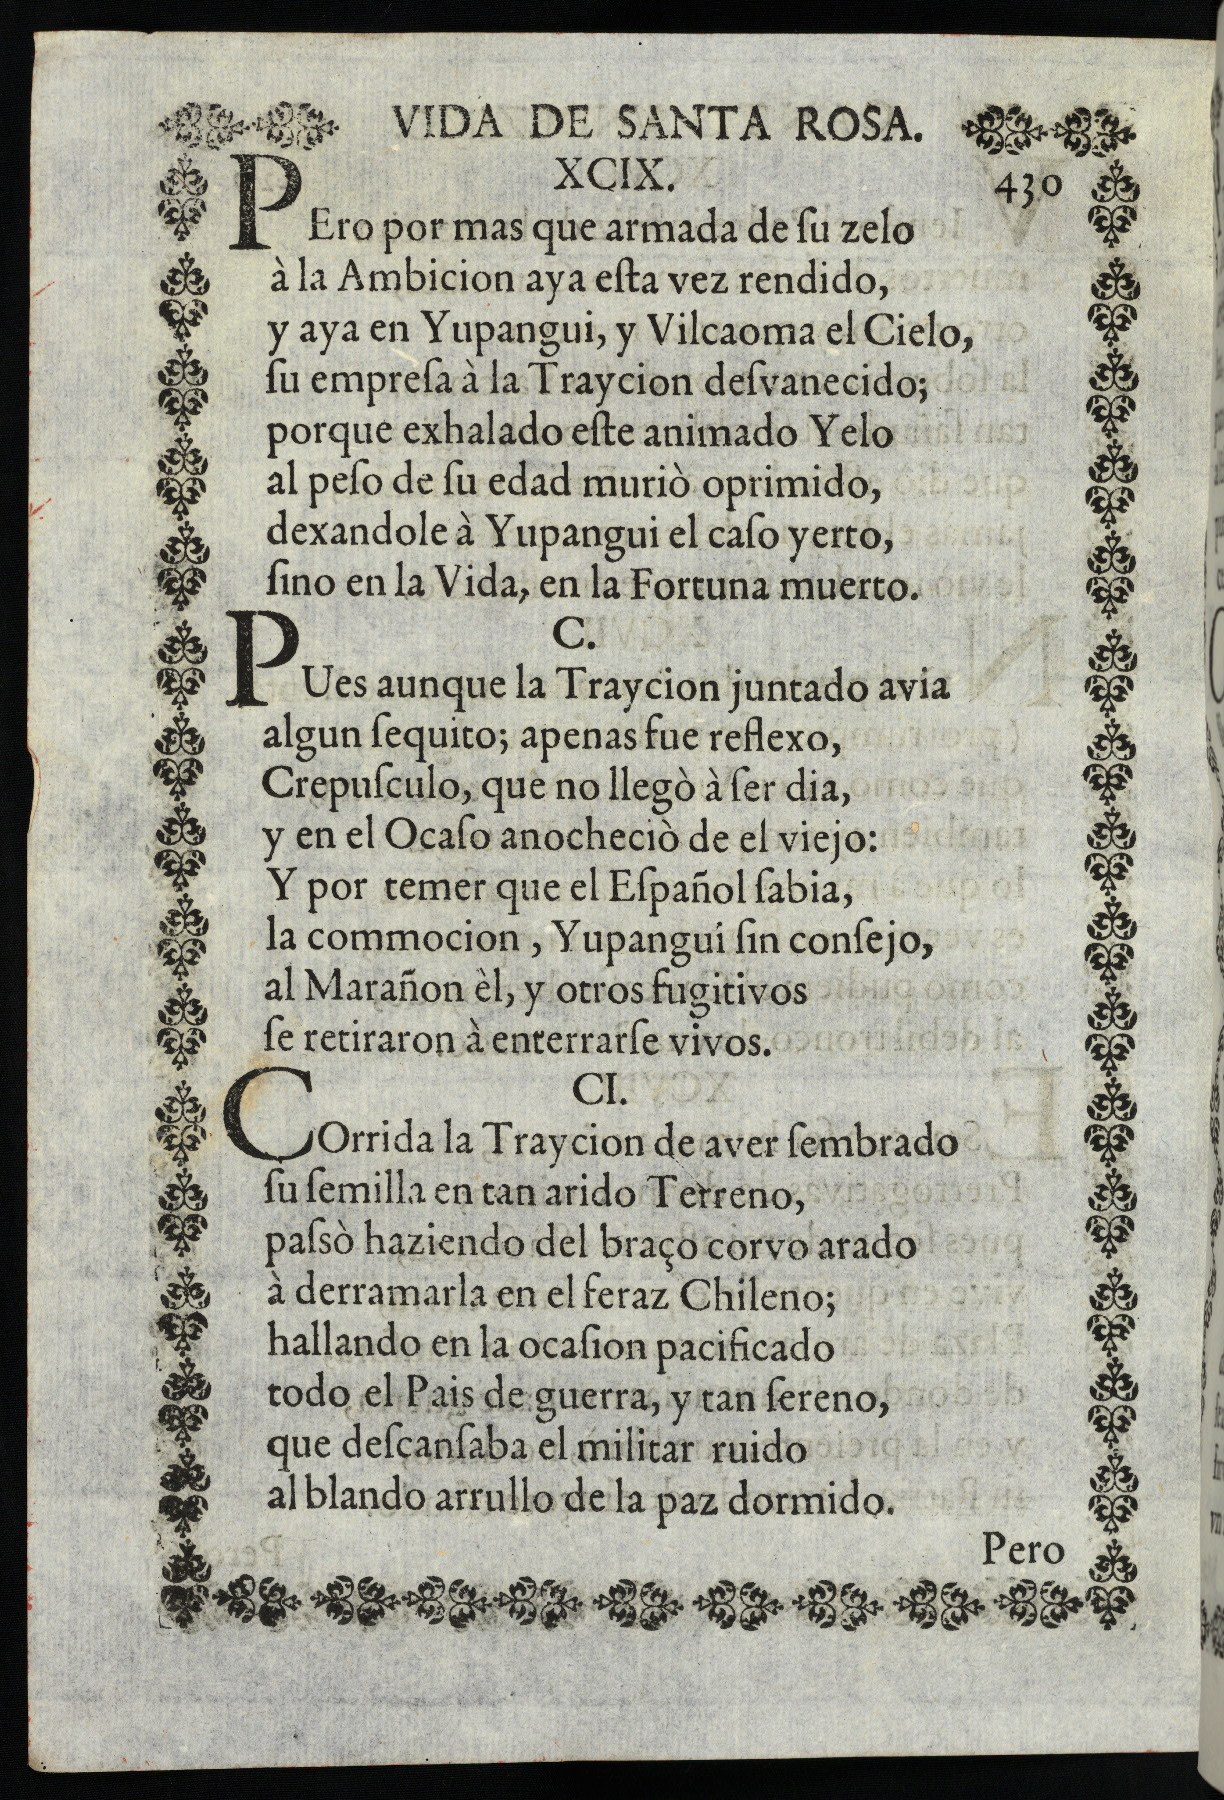 VIDA DE SANTA ROSA.
XCIX. 430
PEro por mas que armada de ſu zelo
à la Ambicion aya eſta vez rendido,
y aya en Yupangui, y Vilcaoma el Cielo,
ſu empreſa à la Traycion deſvanecido;
porque exhalado eſte animado Yelo
al peſo de ſu edad muriò oprimido,
dexandole à Yupangui el caſo yerto,
ſino en la Vida, en la Fortuna muerto.
C.
PUes aunque la Traycion juntado avia
algun ſequito; apenas fue reflexo,
Crepuſculo, que no llegò à ſer dia,
y en el Ocaſo anocheciò de el viejo:
Y por temer que el Eſpañol ſabia,
la commocion, Yupangui ſin conſejo,
al Marañon èl, y otros fugitivos
ſe retiraron à enterrarſe vivos.
CI.
COrrida la Traycion de aver ſembrado
ſu ſemilla en tan arido Terreno,
paſsò haziendo del braço corvo arado
à derramarla en el feraz Chileno;
hallando en la ocaſion pacificado
todo el Pais de guerra, y tan ſereno,
que deſcanſaba el militar ruido
al blando arrullo de la paz dormido.
Pero